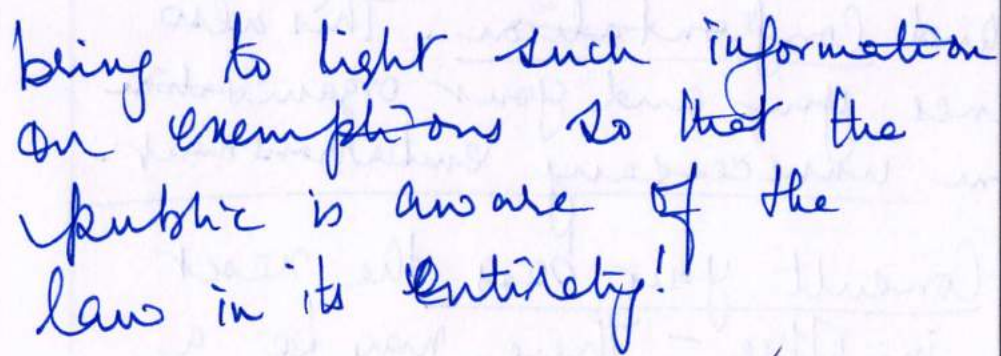 bring to light such information
on exemptions so that the
public is aware of the
law in its entirety!